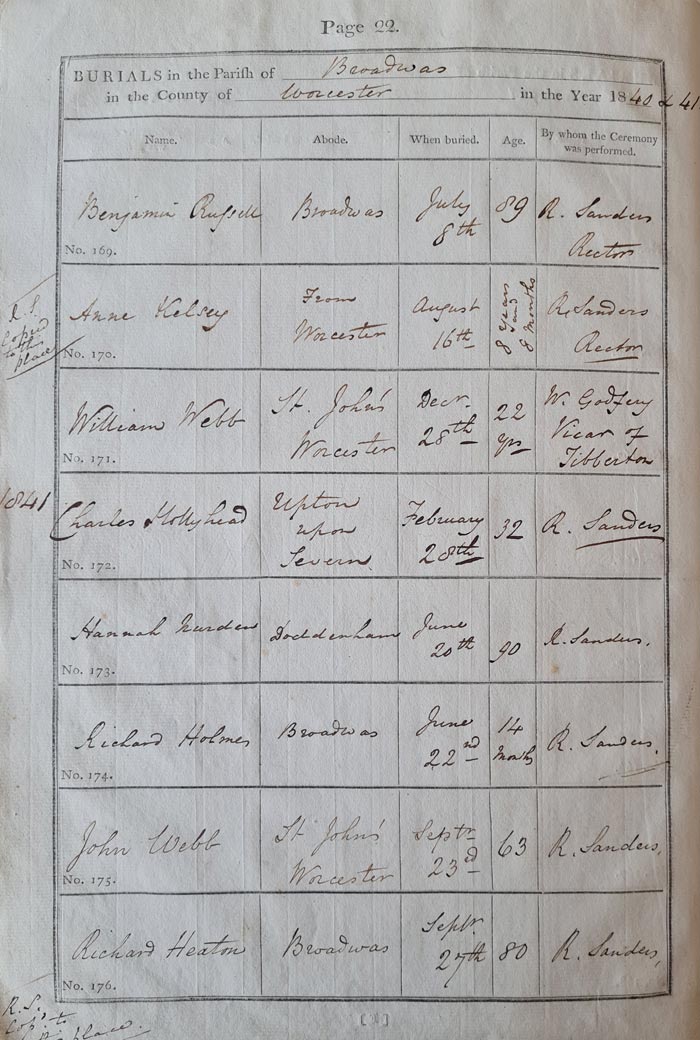 Page 22.
BURIALS in the Parish of Broadwas
in the County of Worcester in the Year 1840 & 41
Name. Abode. When buried. Age. By whom the Ceremony was performed.
Benjamin Russell Broadwas July 8th 89 R. Sanders Rector
No. 169.
R. S.
Copied
to th
place
Anne Kelsey From Worcester August 16th 8 Years and 8 Months R. Sanders Rector
No. 170.
William Webb St. John's Worcester Decr. 28th 22 yrs W. Godfery Vicar of Tibberton
No. 171.
1841
Charles Hollyhead Upton upon Severn. February 28th 32 R. Sanders
No. 172.
Hannah Doddenham June 20th 90 R. Sanders.
No. 173.
Richard Holmes Broadwas June 22nd 14 Months R. Sanders.
No. 174.
John Webb St John's Worcester Septr 23d 63 R. Sanders,
No. 175.
Richard Heaton Broadwas Septr. 27th 80 R. Sanders,
No. 176.
R. S.
place.